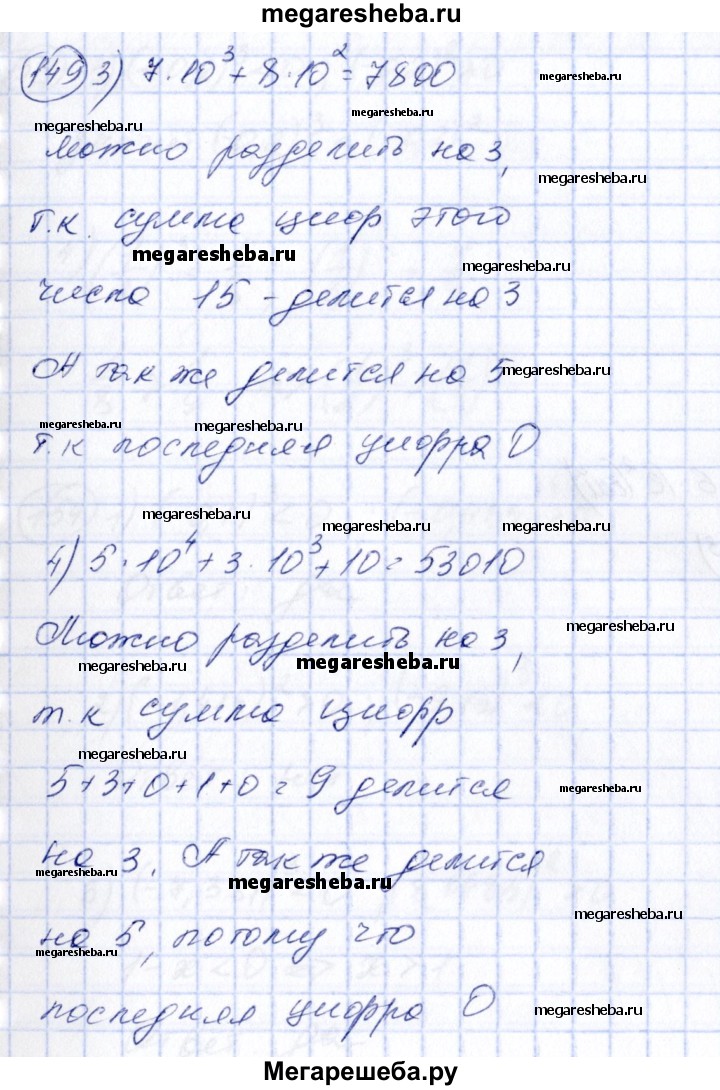 megaresheba.ru
149 3) 7·10³+8·10²=7800
megaresheba.ru
можно разделить на 3,
megaresheba.ru
т.к. сумма цифр этого
megaresheba.ru
megaresheba.ru
числа 15 - делится на 3
А так же делится на 5
megaresheba.ru
megaresheba.ru
megaresheba.ru
т.к последняя цифра 0
megaresheba.ru
megaresheba.ru
4) 5·10⁴+3·10³+10=53010
Можно разделить на 3,
megaresheba.ru
megaresheba.ru
megaresheba.ru
т.к сумма цифр
megaresheba.ru
5+3+0+1+0=9 делится
megaresheba.ru
на 3. А так же делится
megaresheba.ru
megaresheba.ru
megaresheba.ru
на 5, потому что
megaresheba.ru
последняя цифра 0
megaresheba.ru
Мегарешеба.ру